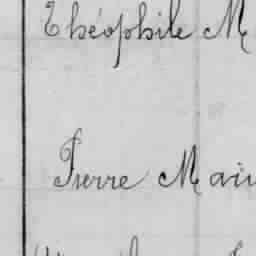 Théophile M
Pierre Mai